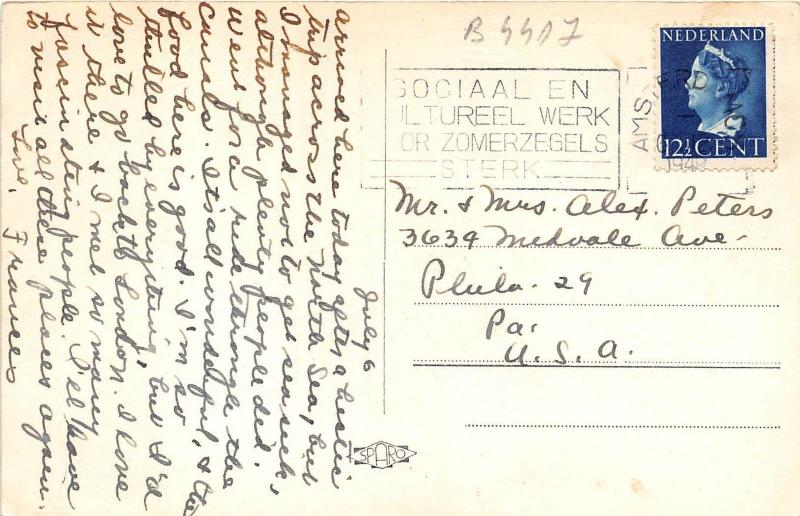 B 4417
NEDERLAND
12½ CENT
SOCIAAL EN
ULTUREEL WERK
OR ZOMERZEGELS
STERK
AMSTERDAM
1948
July 6
arrived here today after a hectic
trip across the North Sea, but
I managed not to get seasick,
although plenty people did.
Went for a ride through the
Canals. Its all wonderful, & the
food here is good. I'm so
thrilled by everything, but I'd
love to go back to London. I love
it there & I met so many
fascinating people. I'll have
to visit all these places again.
Love,
Frances
Mr. & Mrs. Alex. Peters
3639 Medvale Ave-
Phila. 29
Pa.
U.S.A.
SPARO